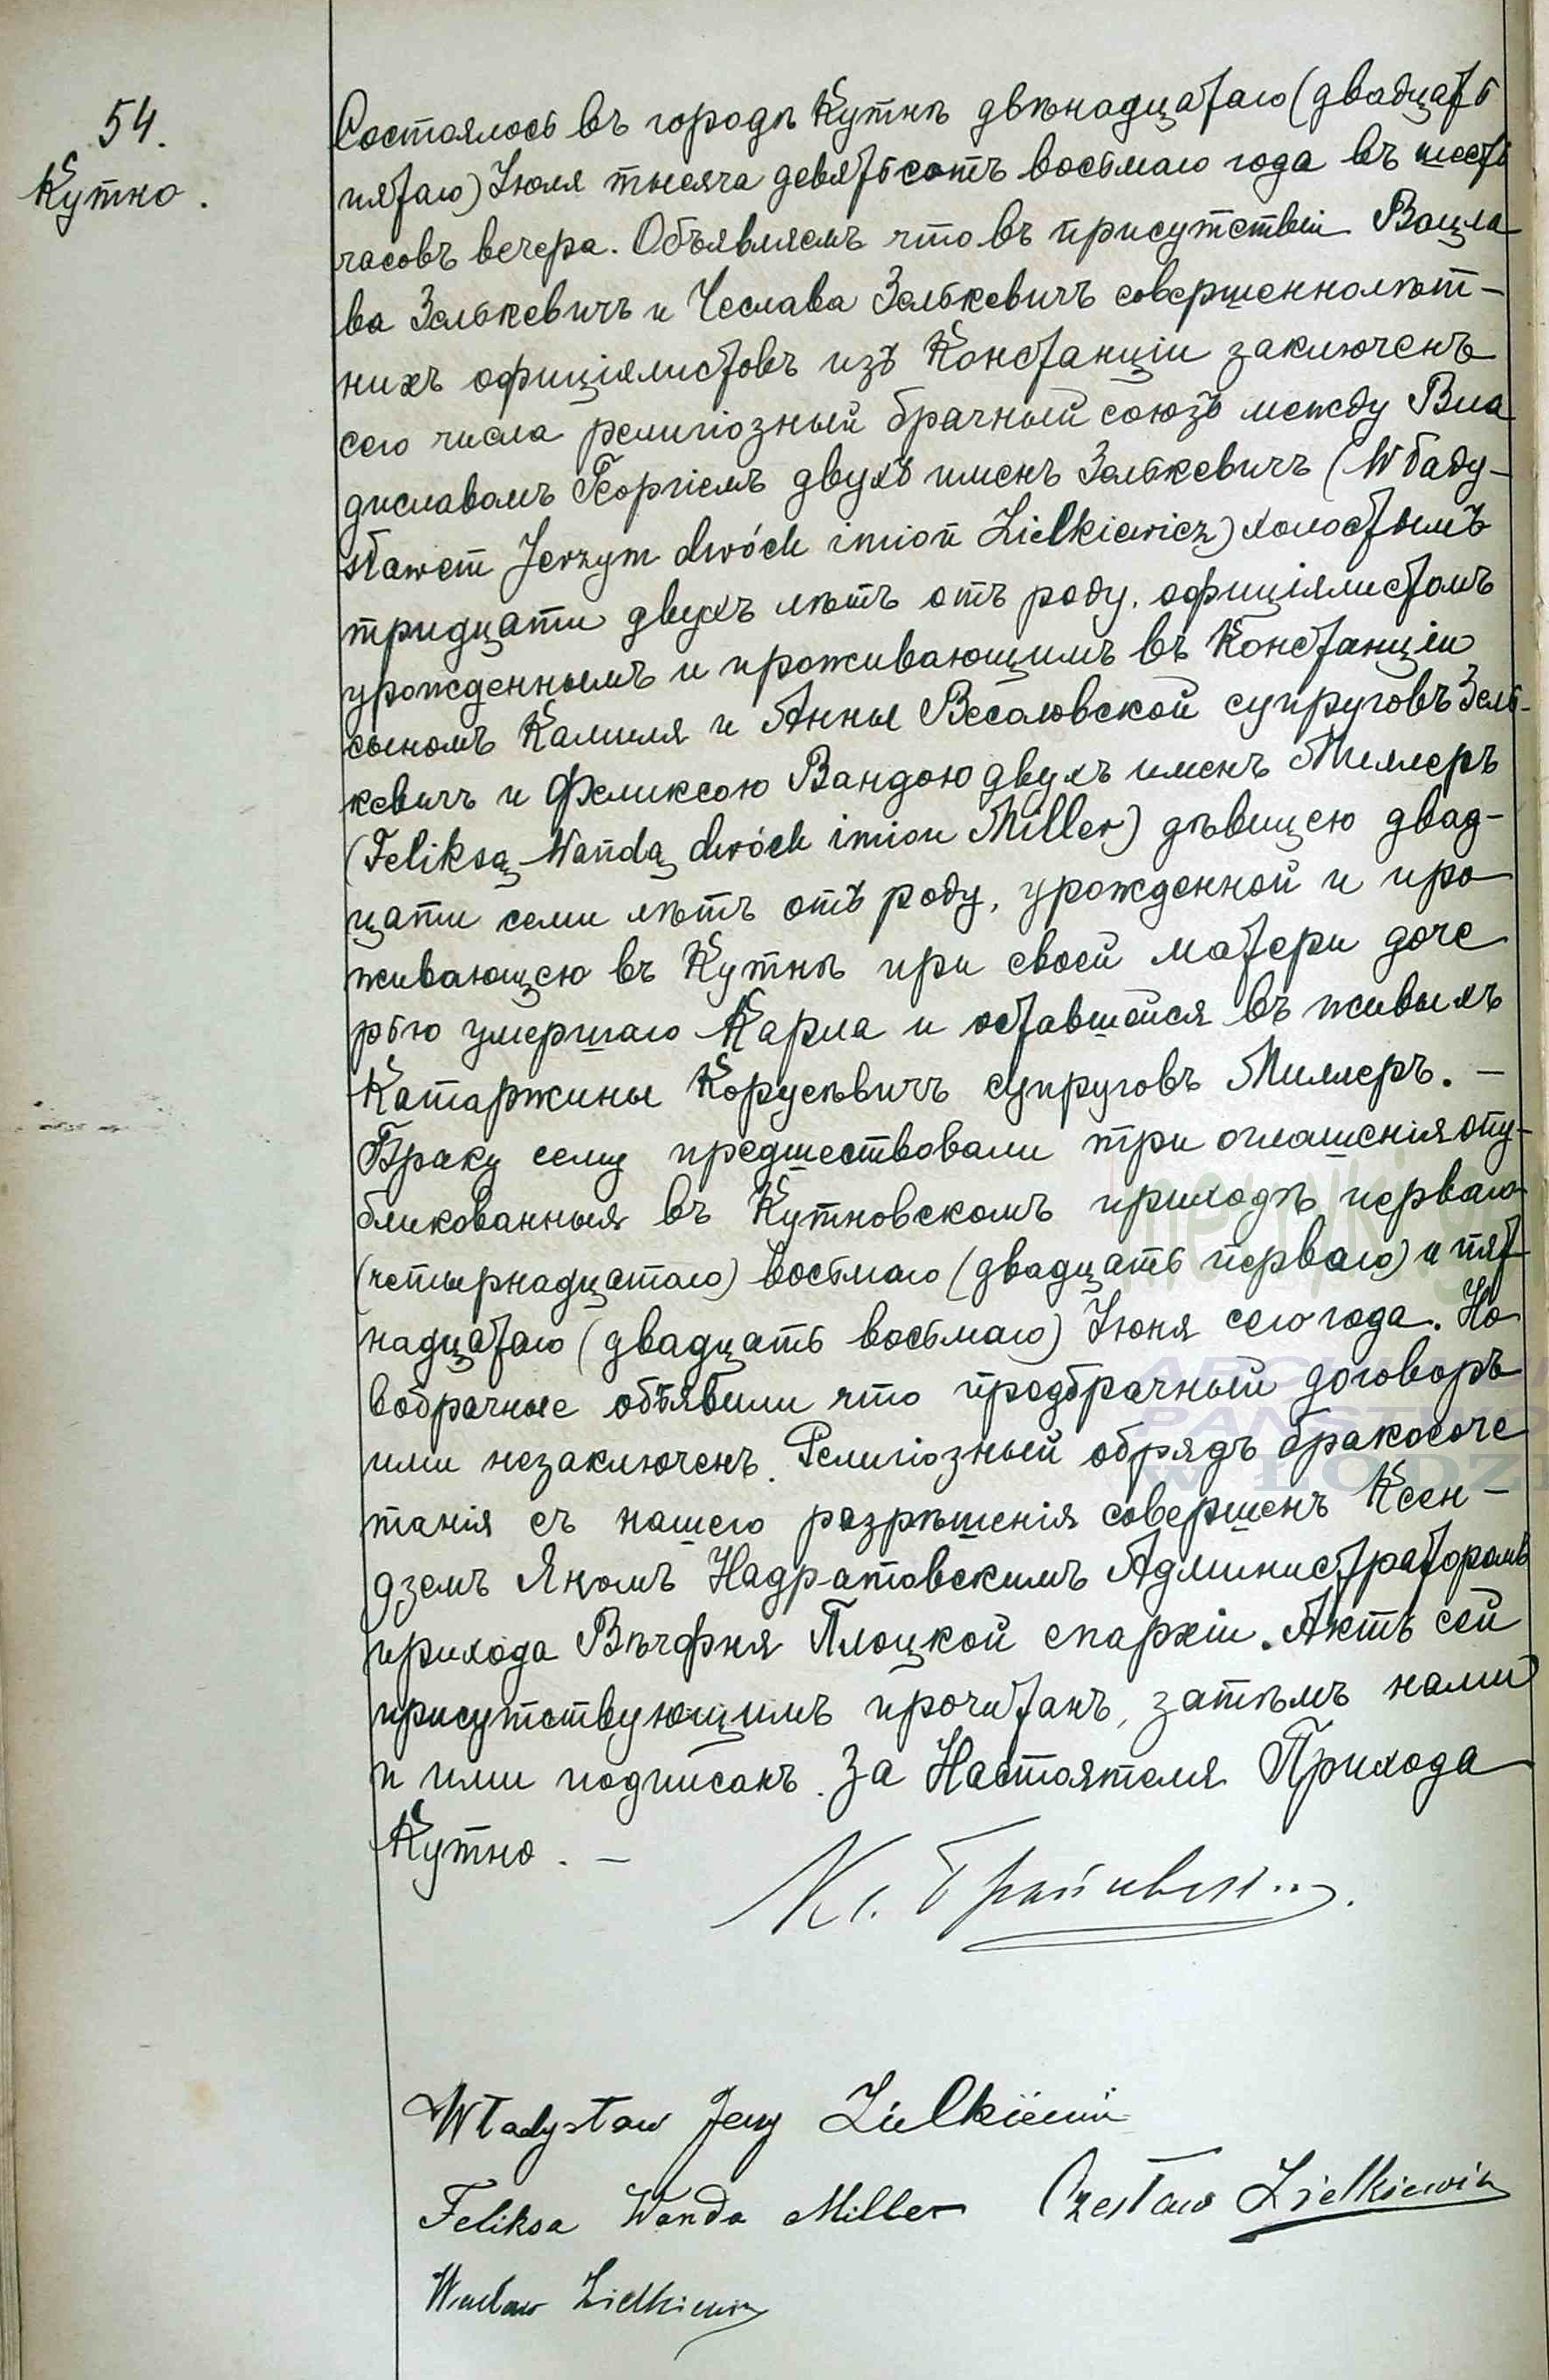 54.
Кутно.
Состоялось въ городѣ Кутнѣ двѣнадцатаго (двадцать
пятаго) Іюля тысяча девятьсотъ восьмаго года въ шесть
часовъ вечера. Объявляемъ что въ присутствіи Вацла
ва Зелькевичъ и Чеслава Зелькевичъ совершеннолѣт-
нихъ офиціялистовъ изъ Констанціи заключенъ
сего числа религіозный брачный союзъ между Вла
диславомъ Георгіемъ двухъ именъ Зелькевичъ (Włady-
sławem Jerzym dwóch imion Zielkiewicz) холостымъ
тридцати двухъ лѣтъ отъ роду, офиціялистомъ
урожденнымъ и проживающимъ въ Констанціи
сыномъ Камиля и Анны Весоловской супруговъ Зель-
кевичъ и Феликсою Вандою двухъ именъ Миллеръ
(Feliksą Wandą dwóch imion Miller) дѣвицею двад-
цати семи лѣтъ отъ роду, урожденной и про
живающею въ Кутнѣ при своей матери доче
рью умершаго Карла и оставшейся въ живыхъ
Катаржины супруговъ Миллеръ. —
Браку сему предшествовали три оглашенія опу-
бликованныя въ Кутновскомъ приходѣ перваго
(четырнадцатаго) восьмаго (двадцать перваго) и пят
надцатаго (двадцать восьмаго) Іюня сего года. Но
вобрачные объявили что предбрачный договоръ
ими незаключенъ. Религіозный обрядъ бракосоче
танія съ нашего разрѣшенія совершенъ Ксен-
дземъ Яномъ Надратовскимъ Администраторомъ
прихода Вѣчфня Плоцкой епархіи. Актъ сей
присутствующимъ прочитанъ, затѣмъ нами
и ими подписанъ. За Настоятеля Прихода
Кутно. —
Władysław Jerzy Zielkiewicz
Feliksa Wanda Miller Czesław Zielkiewicz
Wacław Zielkiewicz
ARCHIWUM
PAŃSTWO
W ŁODZI